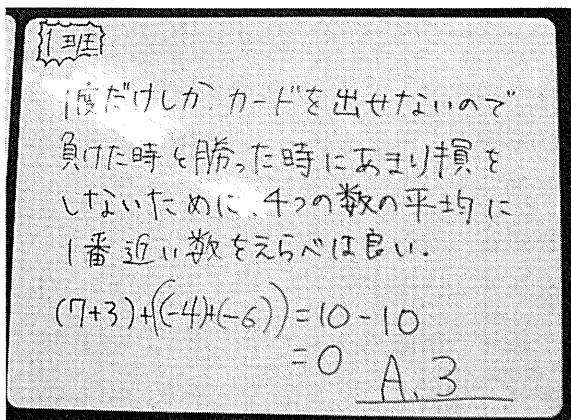 1班
1度だけしか、カードを出せないので
負けた時と勝った時にあまり損を
しないために、4つの数の平均に
1番近い数をえらべは良い.
(7+3)+((-4)+(-6))=10-10
=0
A.3